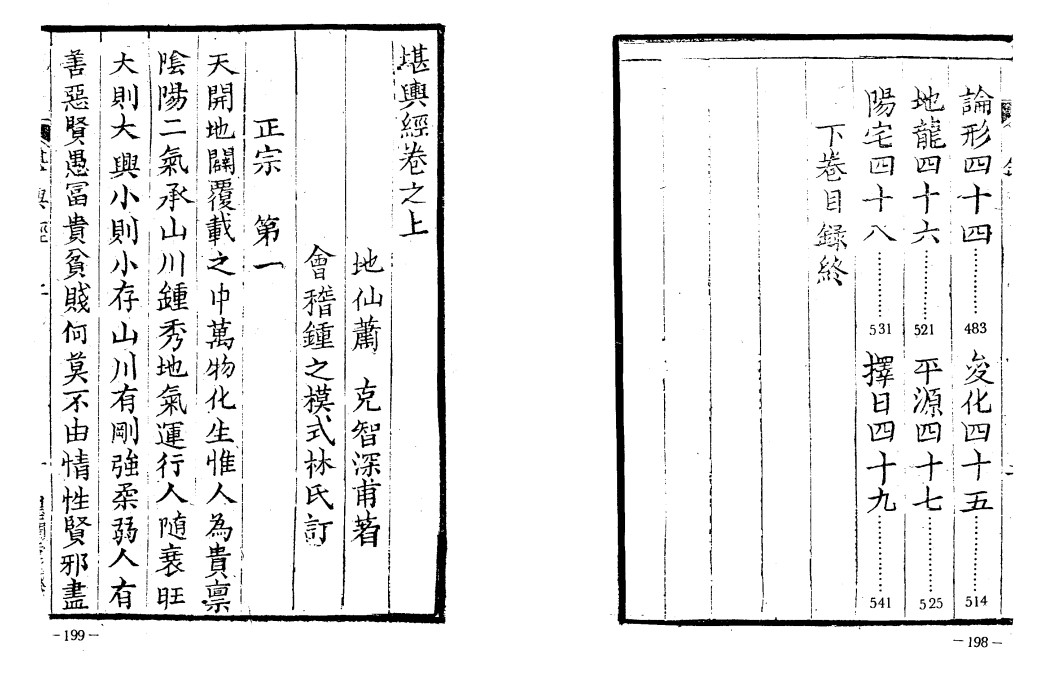 論形四十四……483 変化四十五……514
地龍四十六……521 平源四十七……525
陽宅四十八……531 擇日四十九……541
下巻目録終
－198－
堪輿經卷之上
地仙蕭 克智深甫著
會稽鍾之模式林氏訂
正宗 第一
天開地闢覆載之中萬物化生惟人為貴禀
陰陽二氣承山川鍾秀地氣運行人随衰旺
大則大興小則小存山川有剛強柔弱人有
善惡賢愚富貴貧賤何莫不由情性賢邪盡
－199－